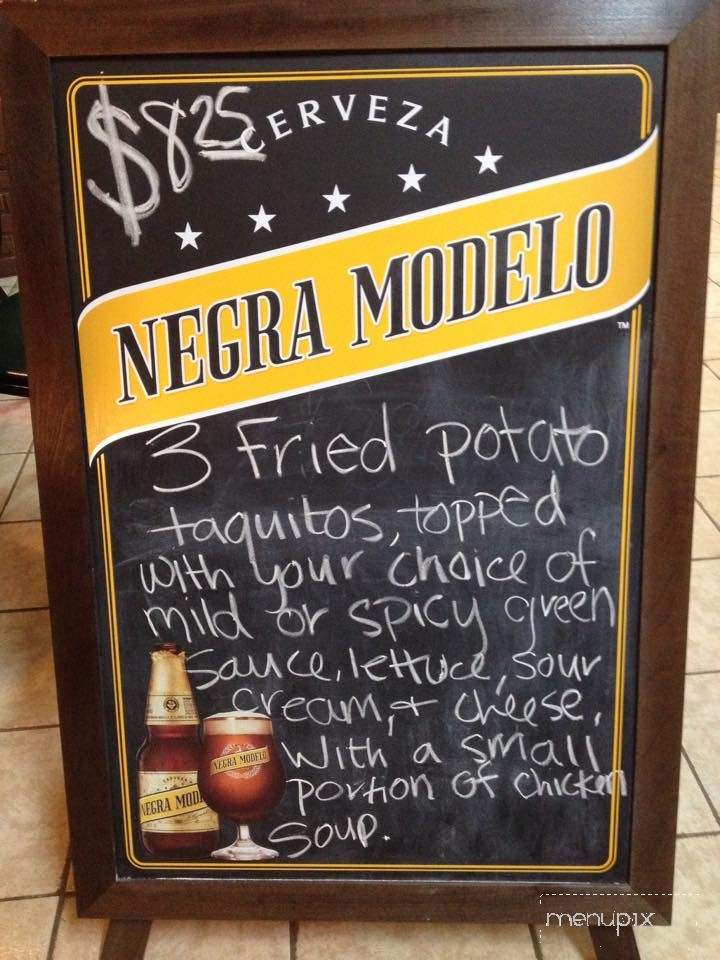 $8.25
CERVEZA
NEGRA MODELO
TM
3 Fried potato
taquitos, topped
with your choice of
mild or spicy green
sauce, lettuce, sour
cream, + cheese,
with a small
portion of chicken
soup.
NEGRA MODELO
CERVEZA
NEGRA MODE
menupix